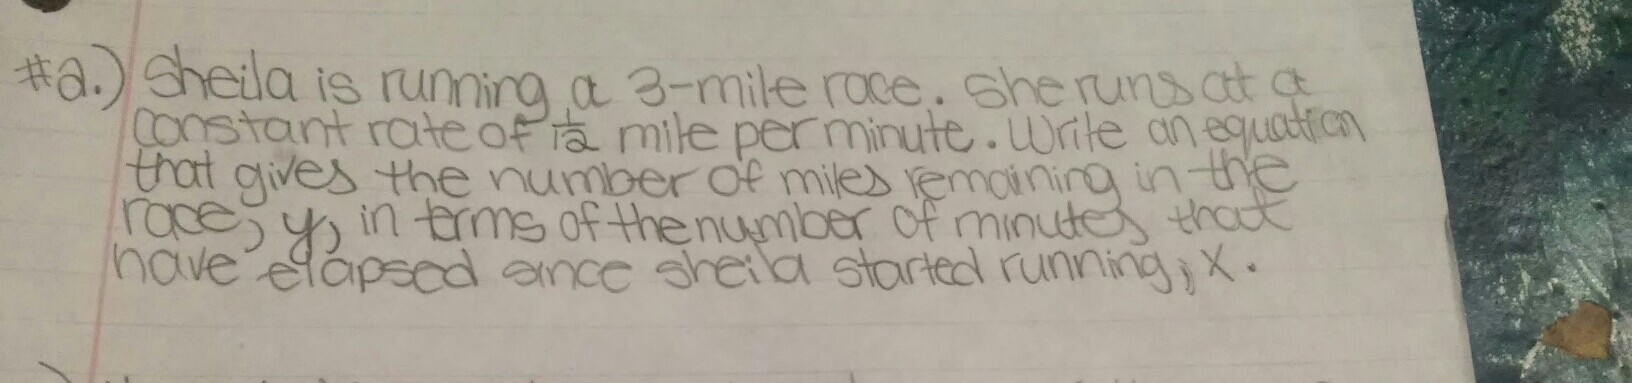 #2.) Sheila is running a 3-mile race. She runs at a
constant rate of 1/12 mile per minute. Write an equation
that gives the number of miles remaining in the
race, y, in terms of the number of minutes that
have elapsed since sheila started running, x.